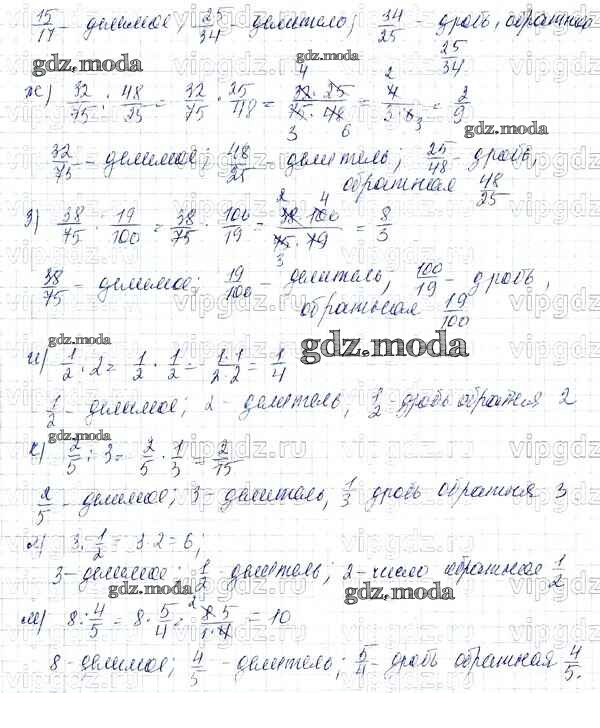 15/17 - делимое; 25/34 - делитель; 34/25 - дробь, обратная 25/34
gdz.moda
ж) 32/75 : 48/25 = 32/75 · 25/48 = 32 · 25 / 75 · 48 = 4/3·6 = 2/9
gdz.moda
32/75 - делимое; 48/25 - делитель; 25/48 - дробь,
обратная 48/25
з) 38/75 : 19/100 = 38/75 · 100/19 = 38 · 100 / 75 · 19 = 8/3
38/75 - делимое; 19/100 - делитель; 100/19 - дробь,
обратная 19/100
gdz.moda
gdz.moda
и) 1/2 : 2 = 1/2 · 1/2 = 1·1/2·2 = 1/4
1/2 - делимое; 2 - делитель; 1/2 - дробь обратная 2
gdz.moda
к) 2/5 : 3 = 2/5 · 1/3 = 2/15
2/5 - делимое; 3 - делитель, 1/3 дробь обратная 3
л) 3 : 1/2 = 3·2 = 6;
3 - делимое; 1/2 - делитель; 2 - число обратное 1/2
gdz.moda
gdz.moda
м) 8 : 4/5 = 8 · 5/4 = 8·5/1·4 = 10
8 - делимое; 4/5 - делитель; 5/4 - дробь обратная 4/5.
vipgdz.ru